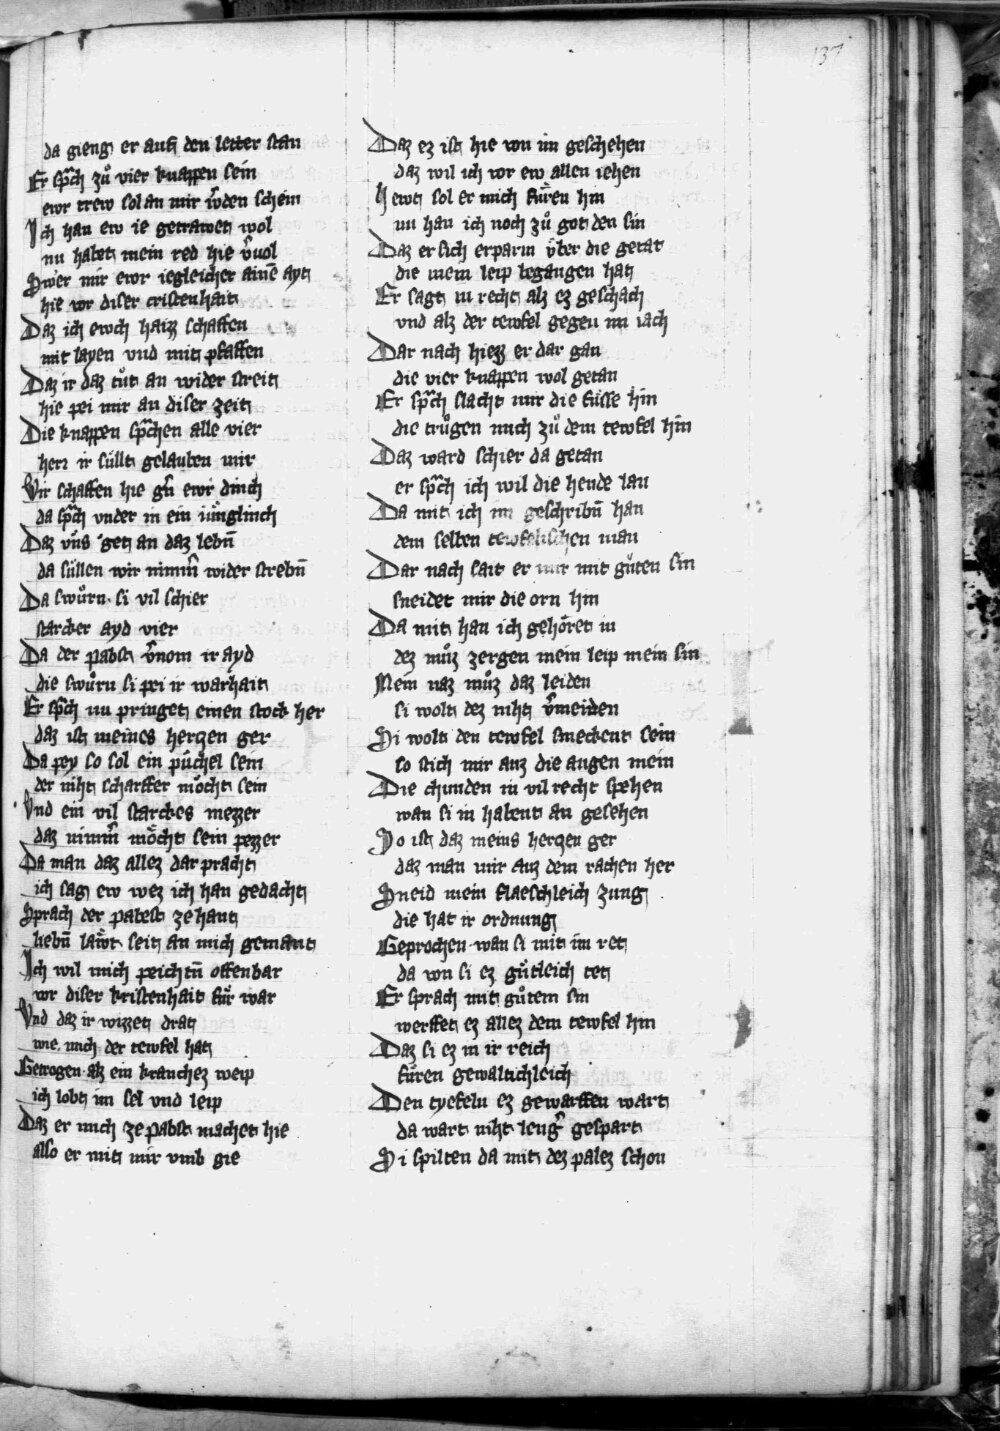 137
da gieng er auf den letter stan
Er sp̄ch zů vier knappen sein
ewr trew sol an mir w̓den schein
Ich han ew ie getrawet wol
nu habet mein red hie v̓uol
Swer mir ewr iegleicher ainē ayt
hie vor diser cristenhait
Daz ich ewch haizz schaffen
mit layen vnd mit pfaffen
Daz ir daz tůt an wider streit
hie pei mir an diser zeit
Die knappen sp̄chen alle vier
herr ir süllt gelauben mir
Wir schaffen hie gn̄ ewr dinch
da sp̄ch vnder in ein iůnglinch
Daz vns get an daz lebn̄
da süllen wir nimm̄ wider strebn̄
Da swůrn si vil schier
starcker ayd vier
Da der pabst v̓nom ir ayd
die swůrn si pei ir warhait
Er sp̄ch nu pringet einen stock her
daz ist meines herczen ger
Da pey so sol ein půchel sein
der niht scharffer möcht sein
Vnd ein vil starckes mezzer
daz nimm̄ möcht sein pezzer
Da man daz allez dar pracht
ich sag ew wez ich han gedacht
Sprach der pabest ze hant
liebn̄ lawt seit an mich gemant
Ich wil mich peichtn̄ offenbar
vor diser kristenhait für war
Vnd daz ir wizzet drat
wie mich der tewfel hat
Getrogen alz ein kranchez weip
ich lobt im sel vnd leip
Daz er mich ze pabst machet hie
allso er mit mir vmb gie
Daz ez ist hie von im geschehen
daz wil ich vor ew allen iehen
Hewt sol er mich füren hin
nu han ich noch zů got den sin
Daz er sich erparm v̈ber die getat
die mein leip begangen hat
Er sagt in recht alz ez geschach
vnd alz der tewfel gegen im iach
Dar nach hiezz er dar gan
die vier knappen wol getan
Er sp̄ch slacht mir die füsse hin
die trůgen mich zů dem tewfel hin
Daz ward schier da getan
er sp̄ch ich wil die hende lan
Da mit ich im geschribn̄ han
dem selben tewfelischen man
Dar nach sait er mir mit gůten sin
sneidet mir die orn hin
Da mit han ich gehöret in
dez můz zergen mein leip mein sin
Mein naz můz daz leiden
si wolt dez niht v̓meiden
Si wolt den tewfel smeckent sein
so stich mir auz die augen mein
Die chunden in vil recht spehen
wan si in habent an gesehen
So ist daz meins herczen ger
daz man mir auz dem rachen her
Sneid mein flaeschleich zung
die hat ir ordnung
Geprochen wan si mit im ret
da von si ez gůtleich tet
Er sprach mit gůtem sin
werffet ez allez dem tewfel hin
Daz si ez in ir reich
füren gewaltichleich
Den tyefeln ez gewarffen wart
da wart niht leng̓ gespart
Si spilten da mit dez palez schon